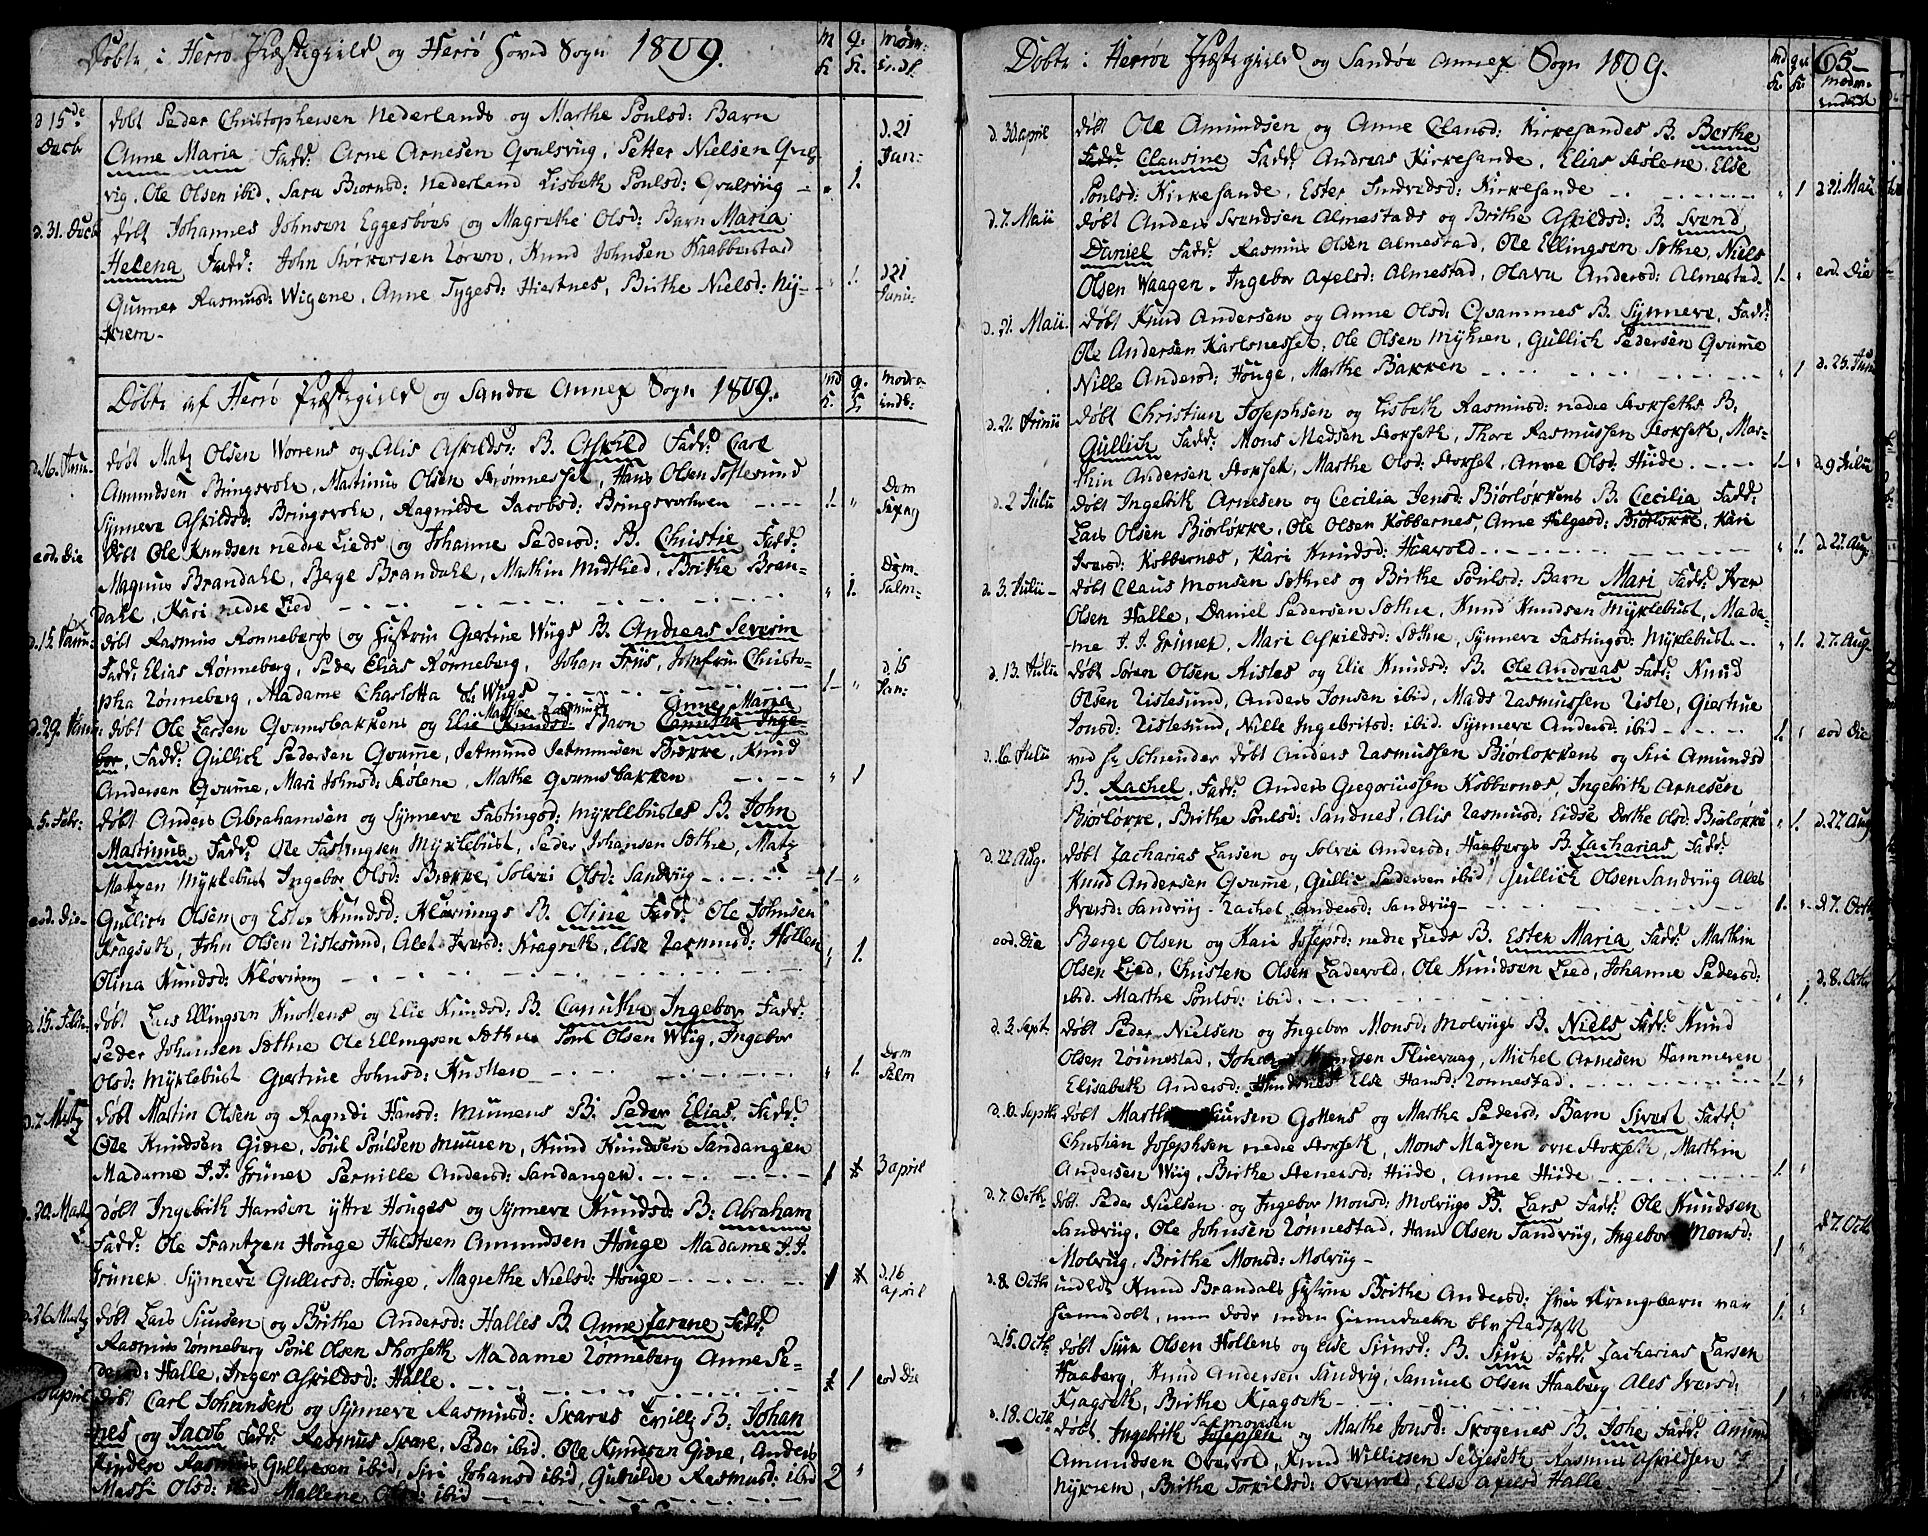 Døbte i Herrø Præstegield og Herrø Hoved Sogn 1809.
m K q. K. Mødr: indl.
d 15de Decb døbt Peder Christophersen Nederlands og Marthe Poulsd: Barn
Anne Maria Fadd: Arne Arnesen Qvalsvug, Petter Nielsen Qval-
vig, Ole Olsen ibid, Sara Biornsd: Nederland Lisbeth Poulsd: Qvalsvug 1. d. 21 Jan:
d. 31. Decb døbt Johannes Johnsen Eggesbøes og Magrethe Olsd: Barn Maria
Helena Fadd: John Knud Johnsen Krabbestad
Gunner Rasmusd: Wigene, Anne Tygesd: Hiertnes, Birthe Nielsd: Ny- 1. d 21 Janu:
krem.
Døbte af Herrø Præstegield og Sandøe Annex Sogn 1809.
md K. q. K. Modra indl:
d. 16. Janu. døbt Matz Olsen Worrens og Alis Askildsd: B. Askild Fadd: Carl
Amundsen Bringsvohr, Martinus Olsen Strømnesset, Hans Olsen
Synneve Askildsd: Bringsvohr, Ragnilde Jacobsd: Bringsvorhen 1. " Dom Sexag
eod. Die døbt Ole Knudsen nedre Lieds og Johanne Pedersd: B. Christie Fadd:
Magnus Brandahl, Berge Brandahl, Mathin Midtlied, Brithe Bran-
dahl, Kari nedre Lied " 1. Dom- Palm-
d. 15. Janu: døbt Rasmus Rønnebergs og Hustrue Giertine Wiigs B. Andreas Severin
Fadd: Elias Rønneberg, Peder Elias Rønneberg, Johan Friis, Johnfru Christo-
pha Rønneberg, Madame Charlotta Wiigs 1 " d. 15 Jan:
d. 29 Janu: døbt Ole Larsen Qvamsbakkens og Elie Knudsd: Rasmusd Barn Anne Maria Canutha Inge
bor, Fadd: Gullich Pedersen Qvame, Setmund Setmunsen Biørke, Knud
Andersen Qvame, Mari Johnsd: Stolene, Mathe Qvamsbakken " 1
d. 5. Febr: døbt Anders Abrahamsen og Synneve Fastingsd: Myklebustes B. John
Martinus Fadd: Ole Fastingsen Myklebust, Peder Johansen Sæthre, Matz
Matzen Myklebust Ingebor Olsd: Biørke, Solvei Olsd: Sandviig 1 "
eod. Die Gullich Olsen og Ester Knudsd: Kløvnings B. Oline Fadd: Ole Johnsen
Kragseth, John Olsen Ristesund, Alet Iversd: Kragseth, Else Rasmusd: Hollen
Olina Knudsd: Kløvning " 1.
d. 15. Febr. døbt Lars Ellingsen Knottens og Elie Knudsd: B. Canutha Ingebor Fadd:
Peder Johansen Sæthre Ole Ellingsen Sæthre Poul Olsen Wiig, Ingebor
Olsd: Myklebust Giertine Johnsd: Knotten " 1. Dom Palm
d. 2 Martz døbt Martin Olsen og Ragndi Hansd: Mumens B. Peder Elias, Fadd:
Ole Knudsen Giøre, Poul Poulsen Muuen, Knud Knudsen Sandangen
Madame J. J. Gruner Pernille Andersd: Sandangen. 1 3 april
d. 20. Martz døbt Ingebrith Hansen yttre Houges og Synneve Knudsd: B: Abraham
Fadd: Ole Frantzen Houge Halsteen Amundsen Houge Madame J. J.
Gruner. Synneve Gullicsd: Houge, Magrethe Nielsd: Houge 1 d. 16 april
d. 26. Martz døbt Lars Siursen og Brithe Andersd: Halles B. Anne Jørane Fadd:
Rasmus Rønneberg Poul Olsen Thorseth Madame Rønneberg Anne Pe-
dersd: Halle, Inger Askildsd: Halle. 1 eod Die
april døbt Carl Johansen og Synneve Rasmusd: Skares Tvilly B: Johan
nes og Jacob Fadd: Rasmus Skare, Peder ibid. Ole Knudsen Giøre, Anders
Gullicsen ibid, Siri Johansd ibid, Gunilde Rasmusd: ibid 2 "
Massi Olsd: ibid Mallene Olsd: ibid
Døbte i Herrøe Præstegield og Sandøe Annex Sogn 1809.
md K. qv. K. 65 Mødrn. indledt
d. 30 april døbt Ole Amundsen og Anne Clausd: Kirkesandes B. Berthe
Clausine Fadd: Andreas Kirkesande, Elias Stølene, Else
Poulsd: Kirkesande, Ester Kirkesande " 1 d 21. Maii
d. 7. Maii døbt Anders Svendsen Almestads og Brithe Askildsd: B. Svend
Daniel Fadd: Rasmus Olsen Almestad, Ole Ellingsen Sæthre, Niels
Olsen Waagen, Ingebor Axelsd: Almestad, Olava Andersd: Almestad. 1. " eod Die
d. 21. Maii. døbt Knud Andersen og Anne Olsd: Qvammes B. Synneve, Fadd:
Ole Andersen Karlsnesset, Ole Olsen Myhren, Gullich Pedersen Qvame
Nille Andersd: Houge, Marthe Bakken " 1 d. 25. Juni
d. 21 Junii døbt Christian Josephsen og Lisbeth Rasmusd: nedre Storseths B.
Gullich Fadd: Mons Madsen Storseth, Thore Rasmussen Storseth, Mar-
thin Andersen Storset, Marthe Olsd: Storset, Anne Olsd: Hiide 1. " d. 9 Julii
d. 2 Julii døbt Ingebrith Arnesen og Cecilia Jensd: Biørløkkens B. Cecilia Fadd:
Lars Olsen Biørløkke, Ole Olsen Kobbernes, Anne Helgesd: Biørløkke, Kari
Iversd: Kobbernæs, Kari Knudsd: Haavold " 1. d. 27. Aug.
d. 3. Julii døbt Claus Monsen Sæthres og Brithe Poulsd: Barn Mari Fadd: Iver
Olsen Halle, Daniel Pedersen Sæthre, Knud Knudsen Myklebust, Mada-
me J. J. Gruner, Mari Askildsd: Sæthre, Synneve Fastingsd: Myklebust " 1. d. 7. Aug.
d. 13. Julii døbt Søren Olsen Ristes og Elie Knudsd: B. Ole Andreas Fadd: Knud
Olsen Ristesund, Anders Jonsen ibid, Mads Rasmussen Riste, Giertrue
Jonsd: Ristesund, Nille Ingebritsd: ibid. Synneve Andersd: ibid 1. " eod Die
d. 16 Julii ved Hr Schreuder døbt Anders Rasmussen Biørløkkens og Siri Amundsd
B. Rachel, Fadd: Anders Gregoriussen Kobbernæs, Ingebrith Arnesen
Biørløkke, Brithe Poulsd: Sandnes, Alis Rasmusd: Eidse Dorthe Olsd: Biørløkke " 1. d. 27 Aug
d. 27. Aug. døbt Zacharias Larsen og Solvei Andersd: Haabergs B. Zacharias Fadd:
Knud Andersen Qvame, Gullic Pedersen ibid Gullich Olsen Sandviig Ales
Iversd: Sandviig - Rachel Andersd: Sandviig 1. " d 7. Octb
eod. Die Berge Olsen og Kari Josepsd: nedre Lieds B. Ester Maria Fadd: Marthin
Olsen Lied, Christen Olsen Ladevold, Ole Knudsen Lied, Johanne Pedersd:
ibid. Marthe Poulsd: ibid. " 1. d. 8. Octb
d. 3. Sept. døbt Peder Nielsen og Ingebor Monsd: Molviigs B. Niels Fadd: Knud
Olsen Rønnestad, Fluevaag, Michel Arnesen Hammeren
Elisabeth Andersd: Else Hansd: Rønnestad. 1. "
d. 10. Septb døbt Gottens og Martha Pedersd: Barn Sivert Fadd:
Christian Josephsen nedre Storseth, Mons Madzen øvre Storseth, Marthin
Andersen Wiig, Brithe Stenersd: Hiide, Anne Hiide 1. "
d. 7. Octb døbt Peder Nielsen og Ingebor Monsd: Molvigs B. Lars Fadd: Ole Knudsen
Sandvug, Ole Johnsen Rønnestad, Hans Olsen Sandvug, Ingebor Monsd:
Molvug, Brithe Monsd: Molvug 1 " d 7. Octb
d. 8. Octb indledt Knud Brandals Hustrue Brithe Andersd: hvis Drengebarn var
hiemedøbt, men døde inden Hiemedaaben blev stadfæstet 1. "
d. 15. Octb døbt Siur Olsen Hollens og Else Simsd: B. Siur Fadd: Zacharias Larsen
Haaberg, Knud Andersen Sandvig, Samuel Olsen Haaberg Ales Iversd:
Kragseth, Birthe Kragseth 1 "
d. 18. Octb døbt Ingebrith Josepsen Salmonsen og Marthe Jonsd: Skogenes B. Johe Fadd: Amund
Amundsen Overvold, Knud Willicsen Setjeseth Rasmus Askildsen
Nykrem, Birthe Torkildsd: Overvold, Else Axelsd Halle